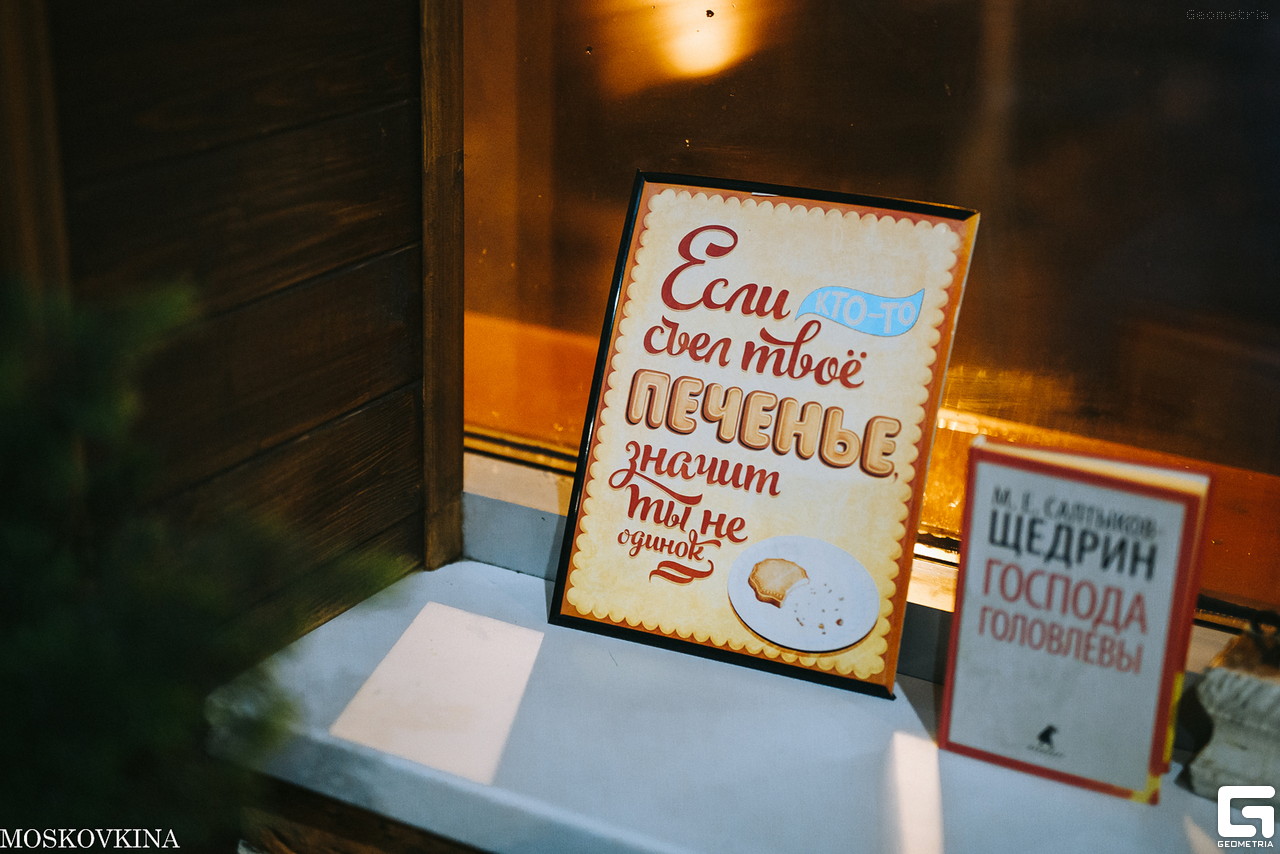 Geometria
Если кто-то
съел твоё
ПЕЧЕНЬЕ,
значит
ты не
одинок
М. Е. САЛТЫКОВ-
ЩЕДРИН
ГОСПОДА
ГОЛОВЛЁВЫ
MOSKOVKINA
GEOMETRIA